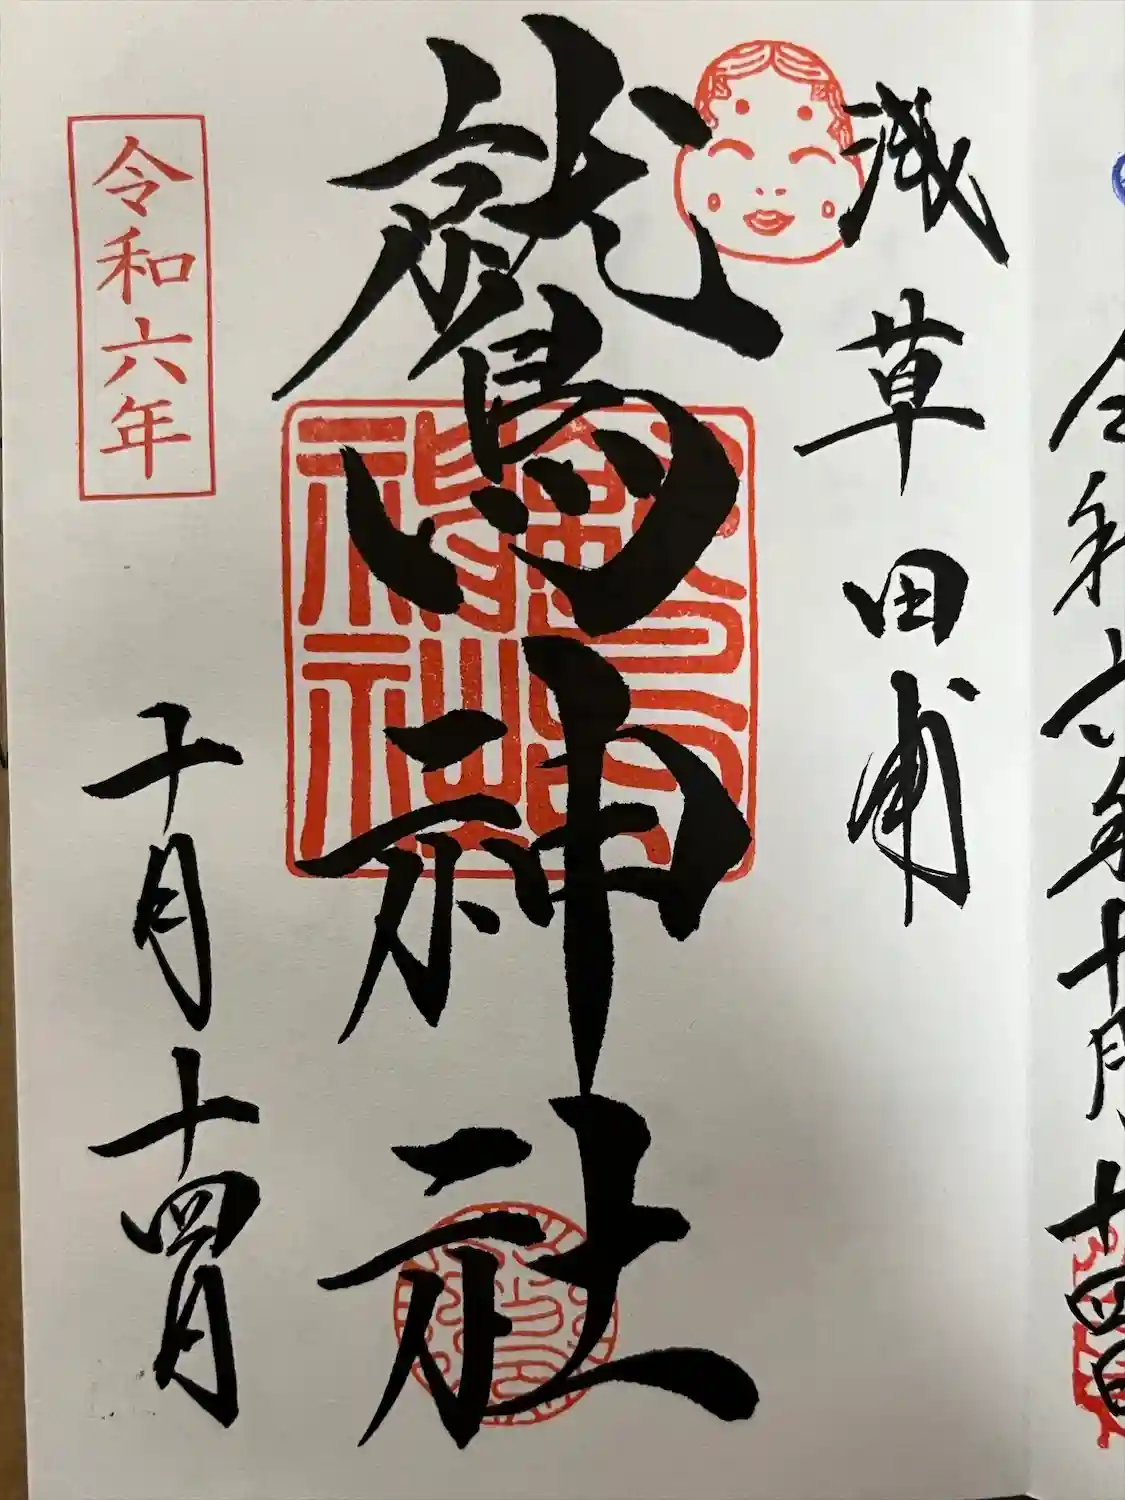 令和六年十月十四日
浅草田甫
鷲神社
令和六年
十月十四日